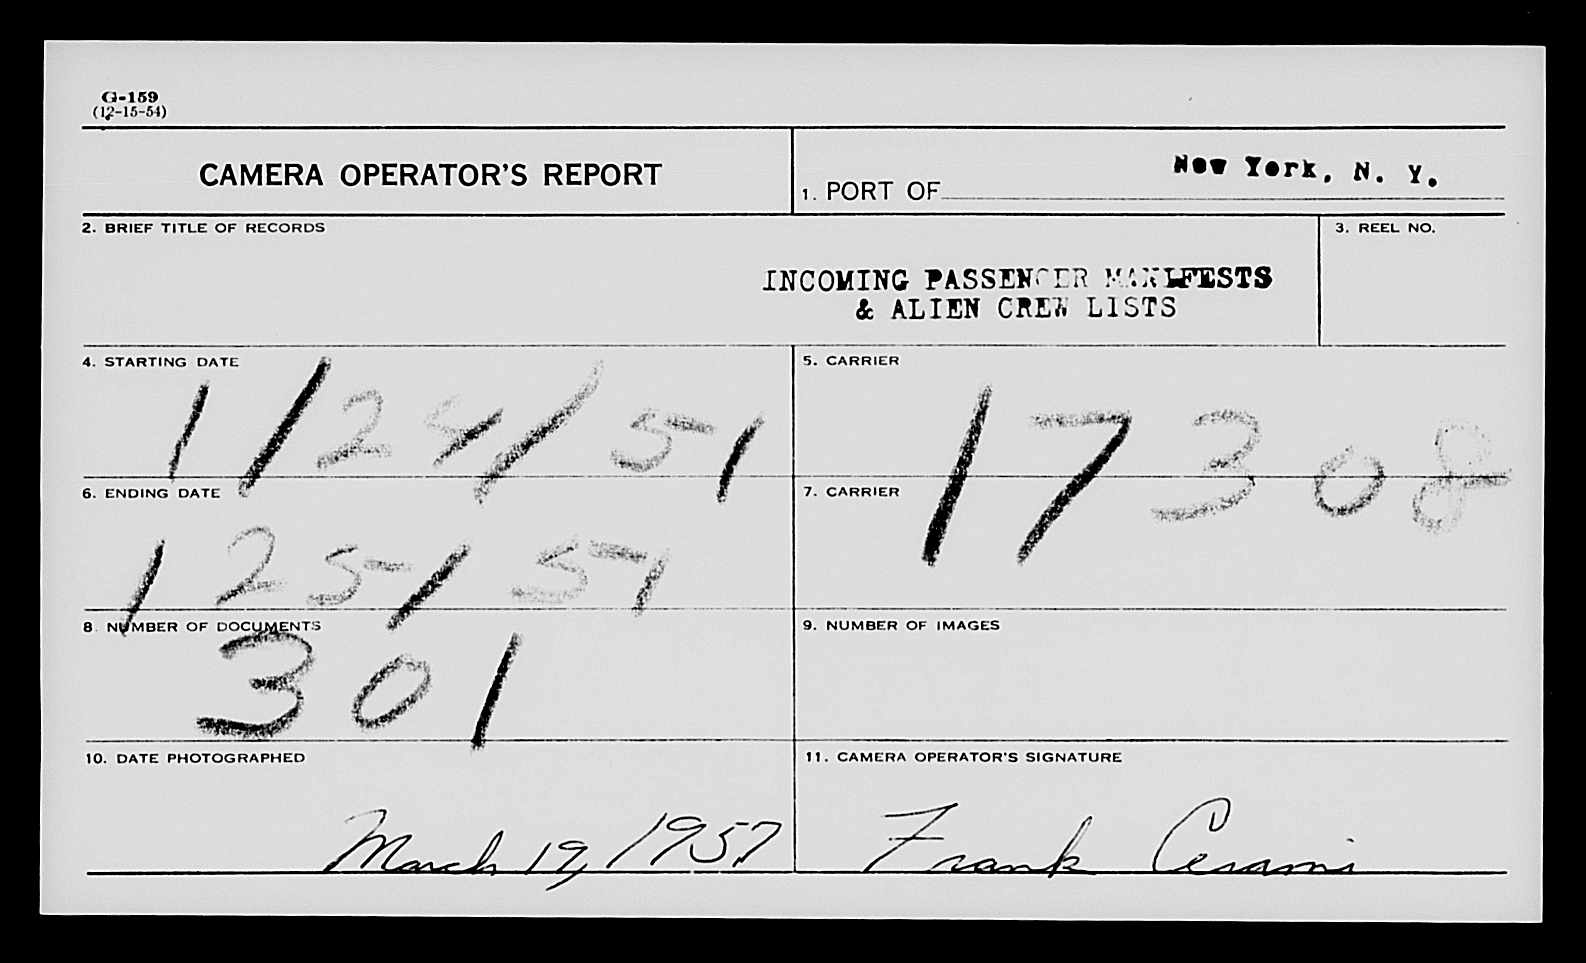 G-159
(12-15-54)
CAMERA OPERATOR'S REPORT
1. PORT OF New York, N. Y.
2. BRIEF TITLE OF RECORDS
3. REEL NO.
INCOMING PASSENGER MANIFESTS
& ALIEN CREW LISTS
4. STARTING DATE
1/24/51
5. CARRIER
17308
6. ENDING DATE
1 25/51
7. CARRIER
8. NUMBER OF DOCUMENTS
301
9. NUMBER OF IMAGES
10. DATE PHOTOGRAPHED
March 19, 1957
11. CAMERA OPERATOR'S SIGNATURE
Frank Cerami